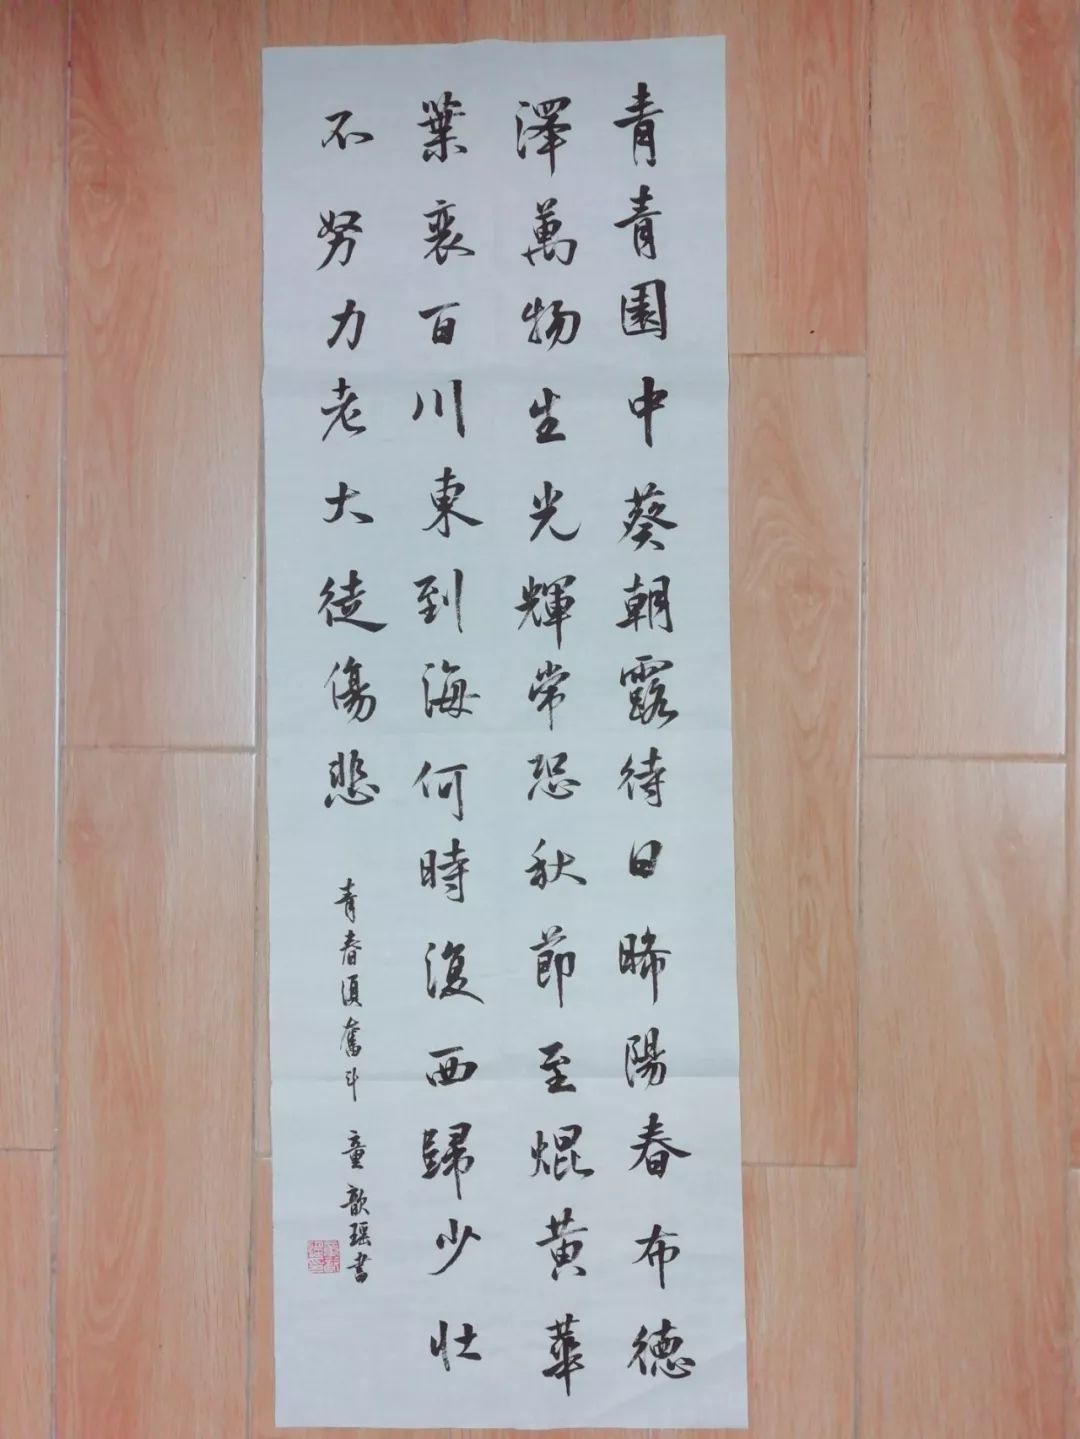 青青園中葵朝露待日晞陽春布德
澤萬物生光輝常恐秋節至焜黄華
葉衰百川東到海何時復西歸少壮
不努力老大徒傷悲
青春須奮斗 童歆瑶書